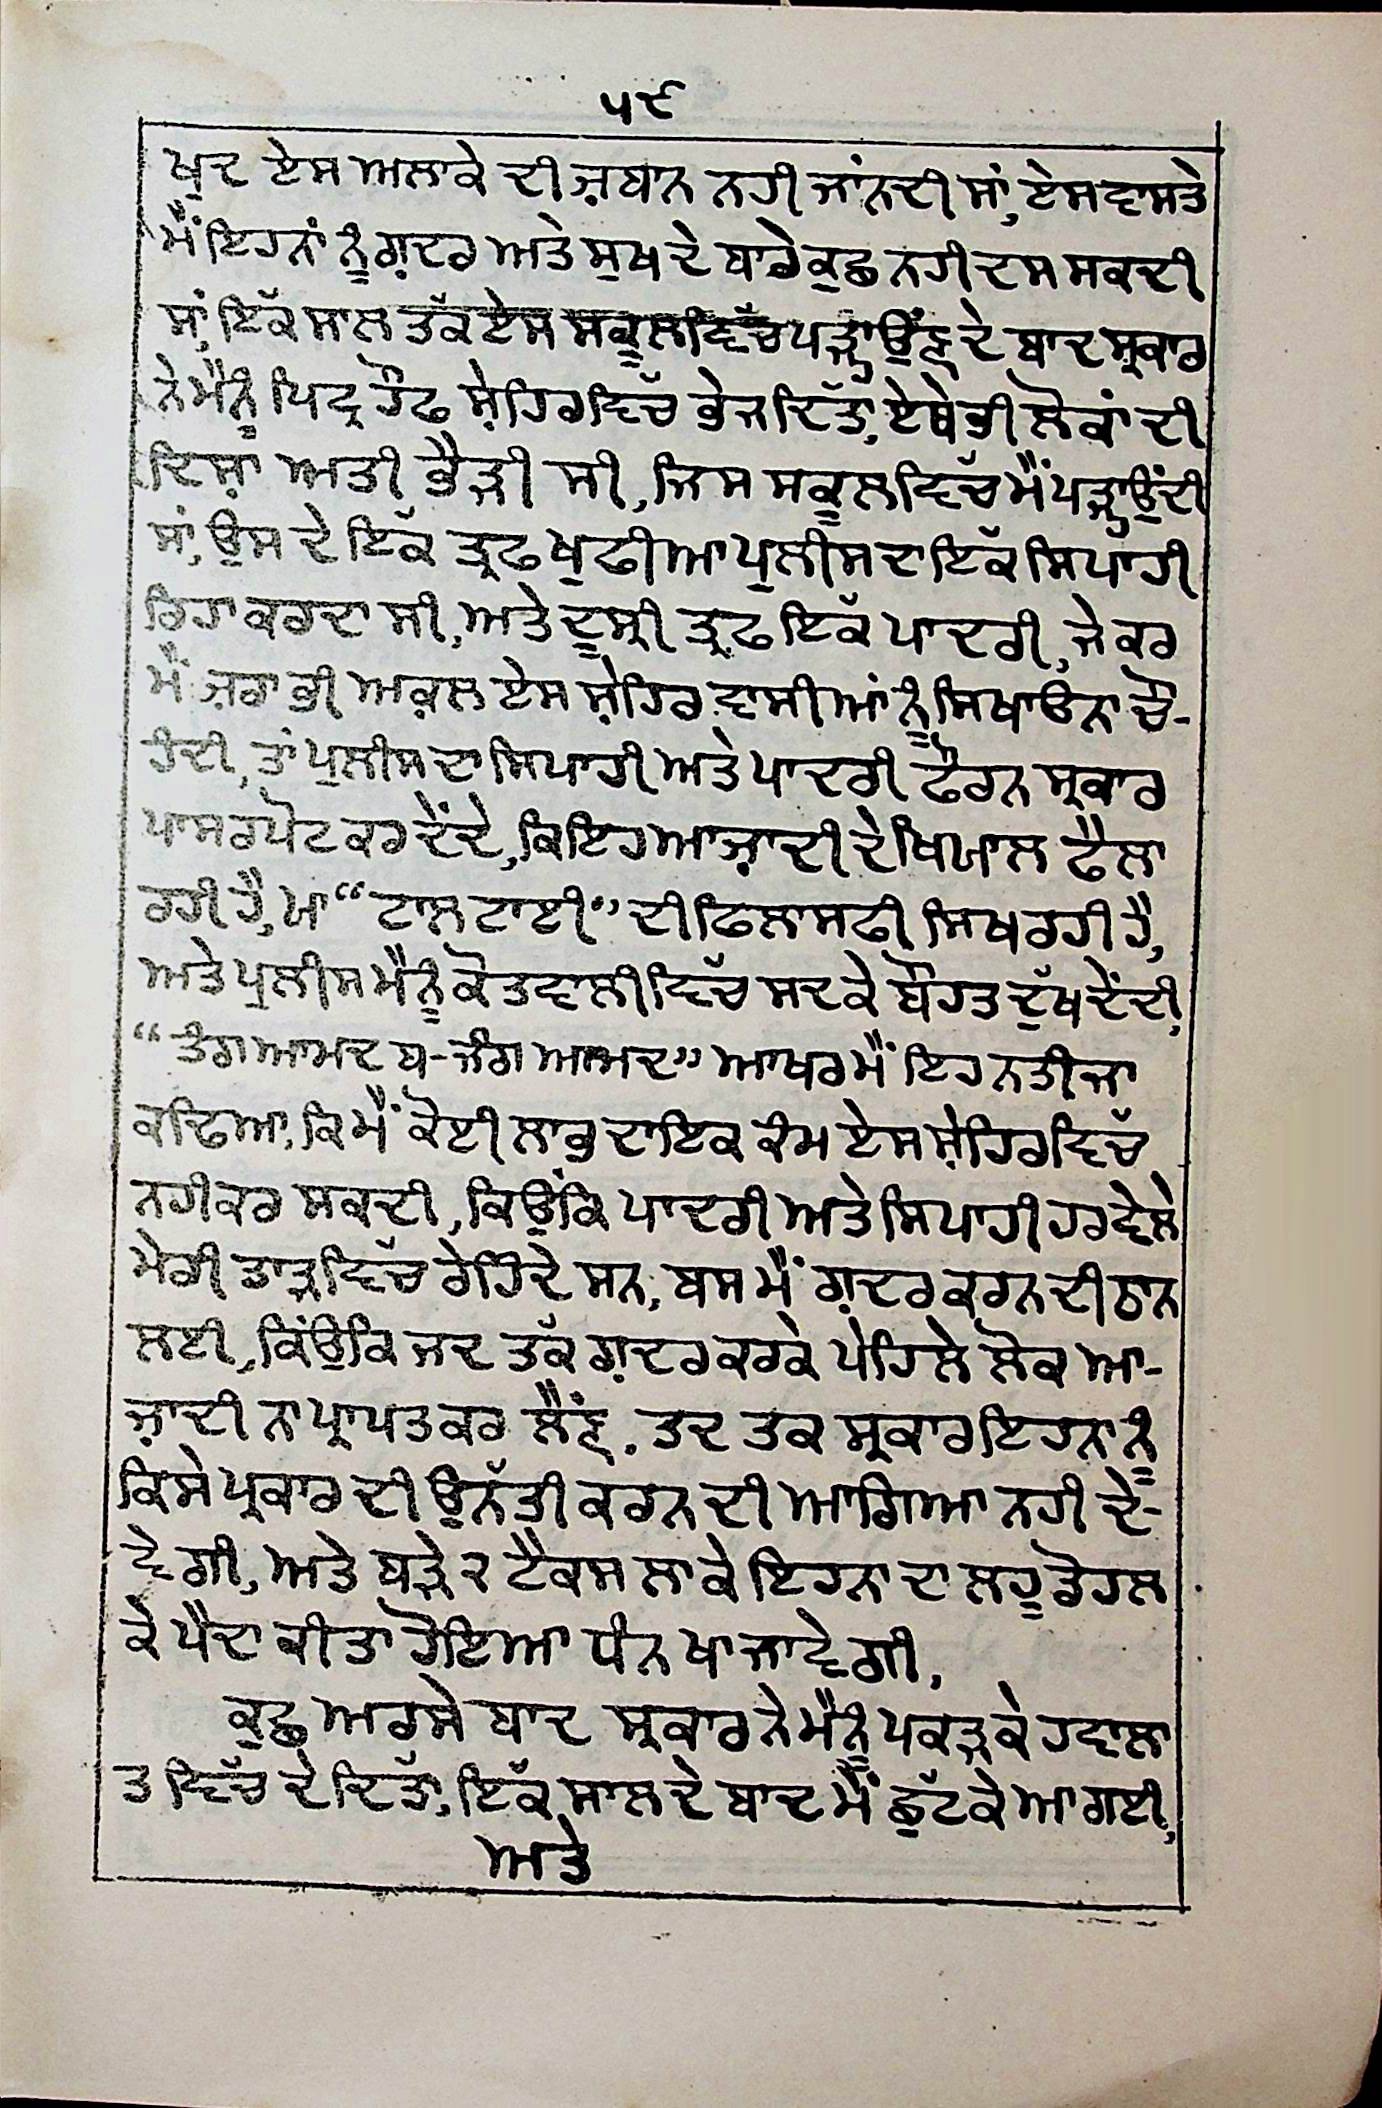 ੫੯
ਖੁਦ ਏਸ ਅਲਾਕੇ ਦੀ ਜ਼ਬਾਨ ਨਹੀ ਜਾਂਨਦੀ ਸਾਂ, ਏਸ ਵਾਸਤੇ
ਮੈਂ ਇਹਨਾਂ ਨੂੰ ਗ਼ਦਰ ਅਤੇ ਸੁਖ ਦੇ ਬਾਰੇ ਕੁਛ ਨਹੀ ਦਸ ਸਕਦੀ
ਸਾਂ, ਇੱਕ ਸਾਲ ਤੱਕ ਏਸ ਸਕੂਲ ਵਿੱਚ ਪੜ੍ਹਾਉਂਣ ਦੇ ਬਾਦ ਸ੍ਰਕਾਰ
ਨੇ ਮੈਨੂੰ ਪਿਟ੍ਰਹੌਫ ਸ਼ੇਹਿਰ ਵਿੱਚ ਭੇਜ ਦਿੱਤਾ, ਏਥੇ ਭੀ ਲੋਕਾਂ ਦੀ
ਦਿਸ਼ਾ ਅਤੀ ਭੈੜੀ ਸੀ, ਜਿਸ ਸਕੂਲ ਵਿੱਚ ਮੈਂ ਪੜ੍ਹਾਉਂਦੀ
ਸਾਂ, ਉਸ ਦੇ ਇੱਕ ਤ੍ਰਫ ਖੁਫੀਆ ਪੁਲੀਸ ਦਾ ਇੱਕ ਸਿਪਾਹੀ
ਰਿਹਾ ਕਰਦਾ ਸੀ, ਅਤੇ ਦੂਸ੍ਰੀ ਤ੍ਰਫ ਇੱਕ ਪਾਦਰੀ, ਜੇਕਰ
ਮੈਂ ਜ਼ਰਾ ਭੀ ਅਕਲ ਏਸ ਸ਼ੇਹਿਰ ਵਾਸੀਆਂ ਨੂੰ ਸਿਖਾਉਨਾ ਚੌ-
ਹੰਦੀ, ਤਾਂ ਪੁਲੀਸ ਦਾ ਸਿਪਾਹੀ ਅਤੇ ਪਾਦਰੀ ਫੌਰਨ ਸ੍ਰਕਾਰ
ਪਾਸ ਰਪੋਟ ਕਰ ਦੇਂਦੇ, ਕਿ ਇਹ ਆਜ਼ਾਦੀ ਦੇ ਖਿਯਾਲ ਫੈਲਾ
ਰਹੀ ਹੈ, ਯਾ “ਟਾਲਟਾਈ” ਦੀ ਫਿਲਾਸਫੀ ਸਿਖ ਰਹੀ ਹੈ,
ਅਤੇ ਪੁਲੀਸ ਮੈਨੂੰ ਕੋਤਵਾਲੀ ਵਿੱਚ ਸਦਕੇ ਬੌਹਤ ਦੁੱਖ ਦੇਂਦੀ,
“ਤੰਗ ਆਮਦ ਬ-ਜੰਗ ਆਮਦ” ਆਖਰ ਮੈਂ ਇਹ ਨਤੀਜਾ
ਕਢਿਆ, ਕਿ ਮੈਂ ਕੋਈ ਲਾਭ ਦਾਇਕ ਕੰਮ ਏਸ ਸ਼ੇਹਿਰ ਵਿੱਚ
ਨਹੀ ਕਰ ਸਕਦੀ, ਕਿਉਂਕਿ ਪਾਦਰੀ ਅਤੇ ਸਿਪਾਹੀ ਹਰ ਵੇਲੇ
ਮੇਰੀ ਤਾੜ ਵਿੱਚ ਰੇਹਿੰਦੇ ਸਨ, ਬਸ ਮੈਂ ਗ਼ਦਰ ਕਰਨ ਦੀ ਠਾਨ
ਲਈ, ਕਿਂਉਕਿ ਜਦ ਤੱਕ ਗ਼ਦਰ ਕਰਕੇ ਪੇਹਿਲੇ ਲੋਕ ਆ-
ਜ਼ਾਦੀ ਨਾ ਪ੍ਰਾਪਤ ਕਰ ਲੈਂਣ, ਤਦ ਤਕ ਸ੍ਰਕਾਰ ਇਹਨਾ ਨੂੰ
ਕਿਸੇ ਪ੍ਰਕਾਰ ਦੀ ਉਨੱਤੀ ਕਰਨ ਦੀ ਆਗਿਆ ਨਹੀ ਦੇ-
ਵੇਗੀ, ਅਤੇ ਬੜੇ ੨ ਟੈਕਸ ਲਾਕੇ ਇਹਨਾ ਦਾ ਲਹੂ ਡੋਹਲ
ਕੇ ਪੈਦਾ ਕੀਤਾ ਹੋਇਆ ਧੰਨ ਖਾ ਜਾਵੇਗੀ,
ਕੁਛ ਅਰਸੇ ਬਾਦ ਸ੍ਰਕਾਰ ਨੇ ਮੈਨੂੰ ਪਕੜਕੇ ਹਵਾਲਾ
ਤ ਵਿੱਚ ਦੇ ਦਿੱਤਾ, ਇੱਕ ਸਾਲ ਦੇ ਬਾਦ ਮੈਂ ਛੁੱਟਕੇ ਆ ਗਈ,
ਅਤੇ